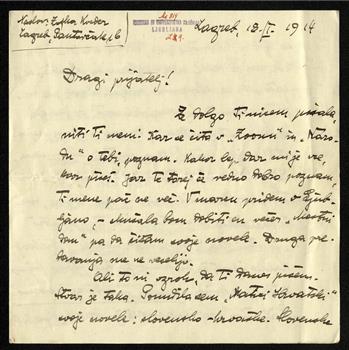 Naslov: Zofka Kveder
Zagreb, Pantovčak 1b
LJUBLJANA
Zagreb 18. II. 1914
Dragi prijatelj!
Že dolgo Ti nisem pisala,
niti Ti meni. Kar se čita v „Zvonu" in „Naro-
du" o tebi, poznam. Kakor lep dar mi je vse,
kar pišeš. Jaz te torej še vedno dobro poznam,
Ti mene pač ne več. V marcu pridem v Ljub-
ljano, - skušala bom dobiti en večer „Mestni
dom" pa da čitam svoje novele. Druga pre-
davanja me ne vesele.
Ali to ni vzrok, da Ti danes pišem.
Stvar je taka. Ponudila sem „Matici Hrvatski"
svoje novele: slovensko-hrvatske. Slovenske